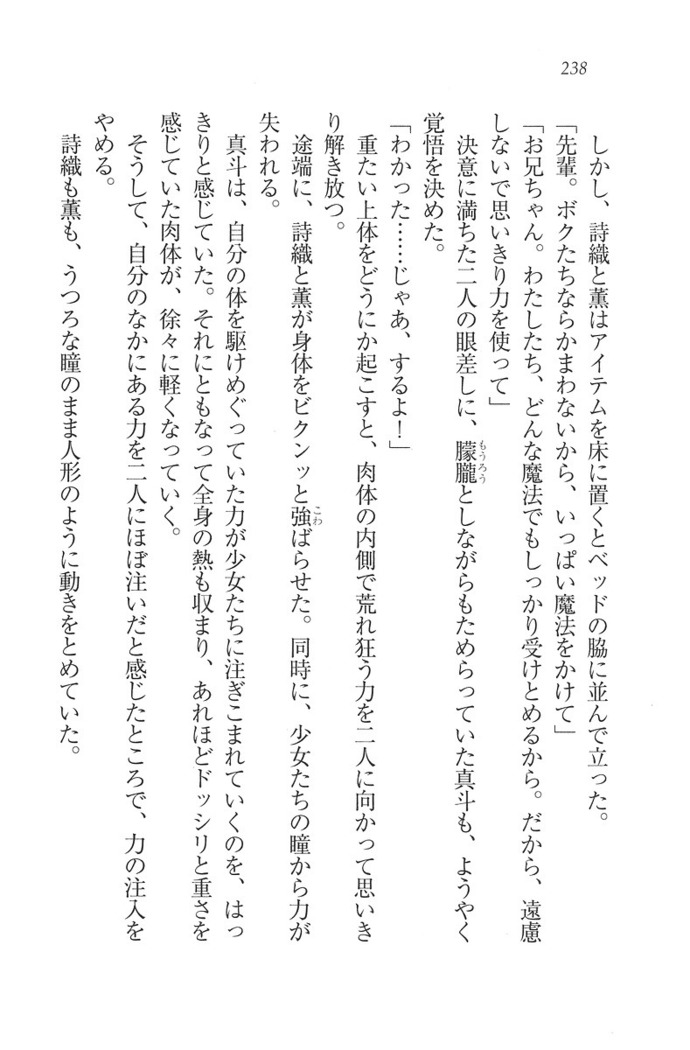 238
しかし、詩織と薫はアイテムを床に置くとベッドの脇に並んで立った。
「先輩。ボクたちならかまわないから、いっぱい魔法をかけて」
「お兄ちゃん。わたしたち、どんな魔法でもしっかり受けとめるから。だから、遠慮
しないで思いきり力を使って」
決意に満ちた二人の眼差しに、朦朧としながらもためらっていた真斗も、ようやく
もうろう
覚悟を決めた。
「わかった……じゃあ、するよ！」
重たい上体をどうにか起こすと、肉体の内側で荒れ狂う力を二人に向かって思いき
り解き放つ。
途端に、詩織と薫が身体をビクンッと強ばらせた。同時に、少女たちの瞳から力が
こわ
失われる。
真斗は、自分の体を駆けめぐっていた力が少女たちに注ぎこまれていくのを、はっ
きりと感じていた。それにともなって全身の熱も収まり、あれほどドッシリと重さを
感じていた肉体が、徐々に軽くなっていく。
そうして、自分のなかにある力を二人にほぼ注いだと感じたところで、力の注入を
やめる。
詩織も薫も、うつろな瞳のまま人形のように動きをとめていた。